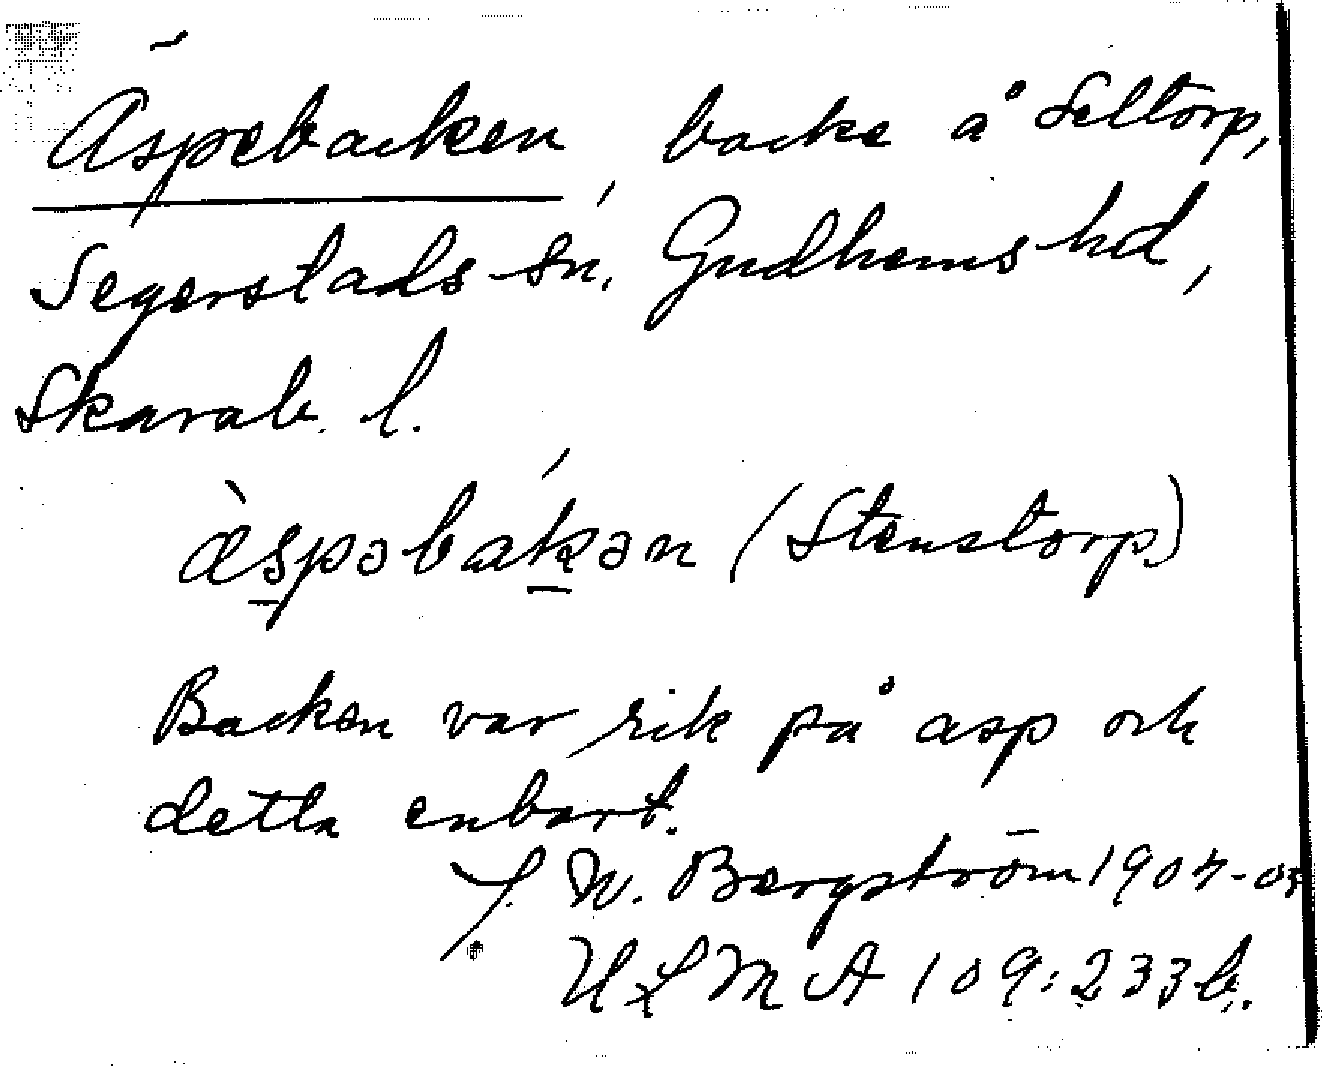 Äspebacken, backe å Seltorp,
Segerstads sn. Gudhems hd,
Skarab. l.
æ̀spəbákən (Stenstorp)
Backen var rik på asp och
detta enbart.
J. W. Bergström 1904-05
ULMA 109:233 b.